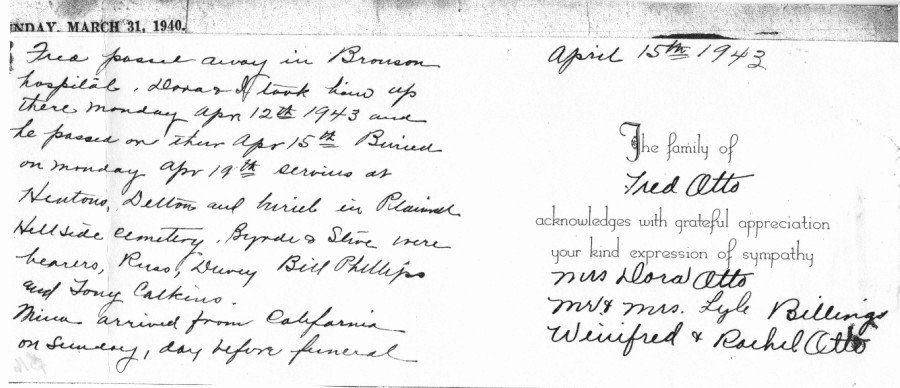 NDAY, MARCH 31, 1940.
Fred passed away in Bronson
hospital. Dora & I took him up
there monday Apr 12th 1943 and
he passed on thur Apr 15th Buried
on monday Apr 19th services at
Hentons, Delton and buriel in Plainwell
Hillside Cemetery. & Steve were
bearers, Russ, Dewey Bill Phillips
and Tony Calkins.
Mina arrived from California
on Sunday, day before funeral
April 15th 1943
The family of
Fred Otto
acknowledges with grateful appreciation
your kind expression of sympathy
Mrs Dora Otto
Mr & Mrs. Lyle Billings
Winifred & Rachel Otto